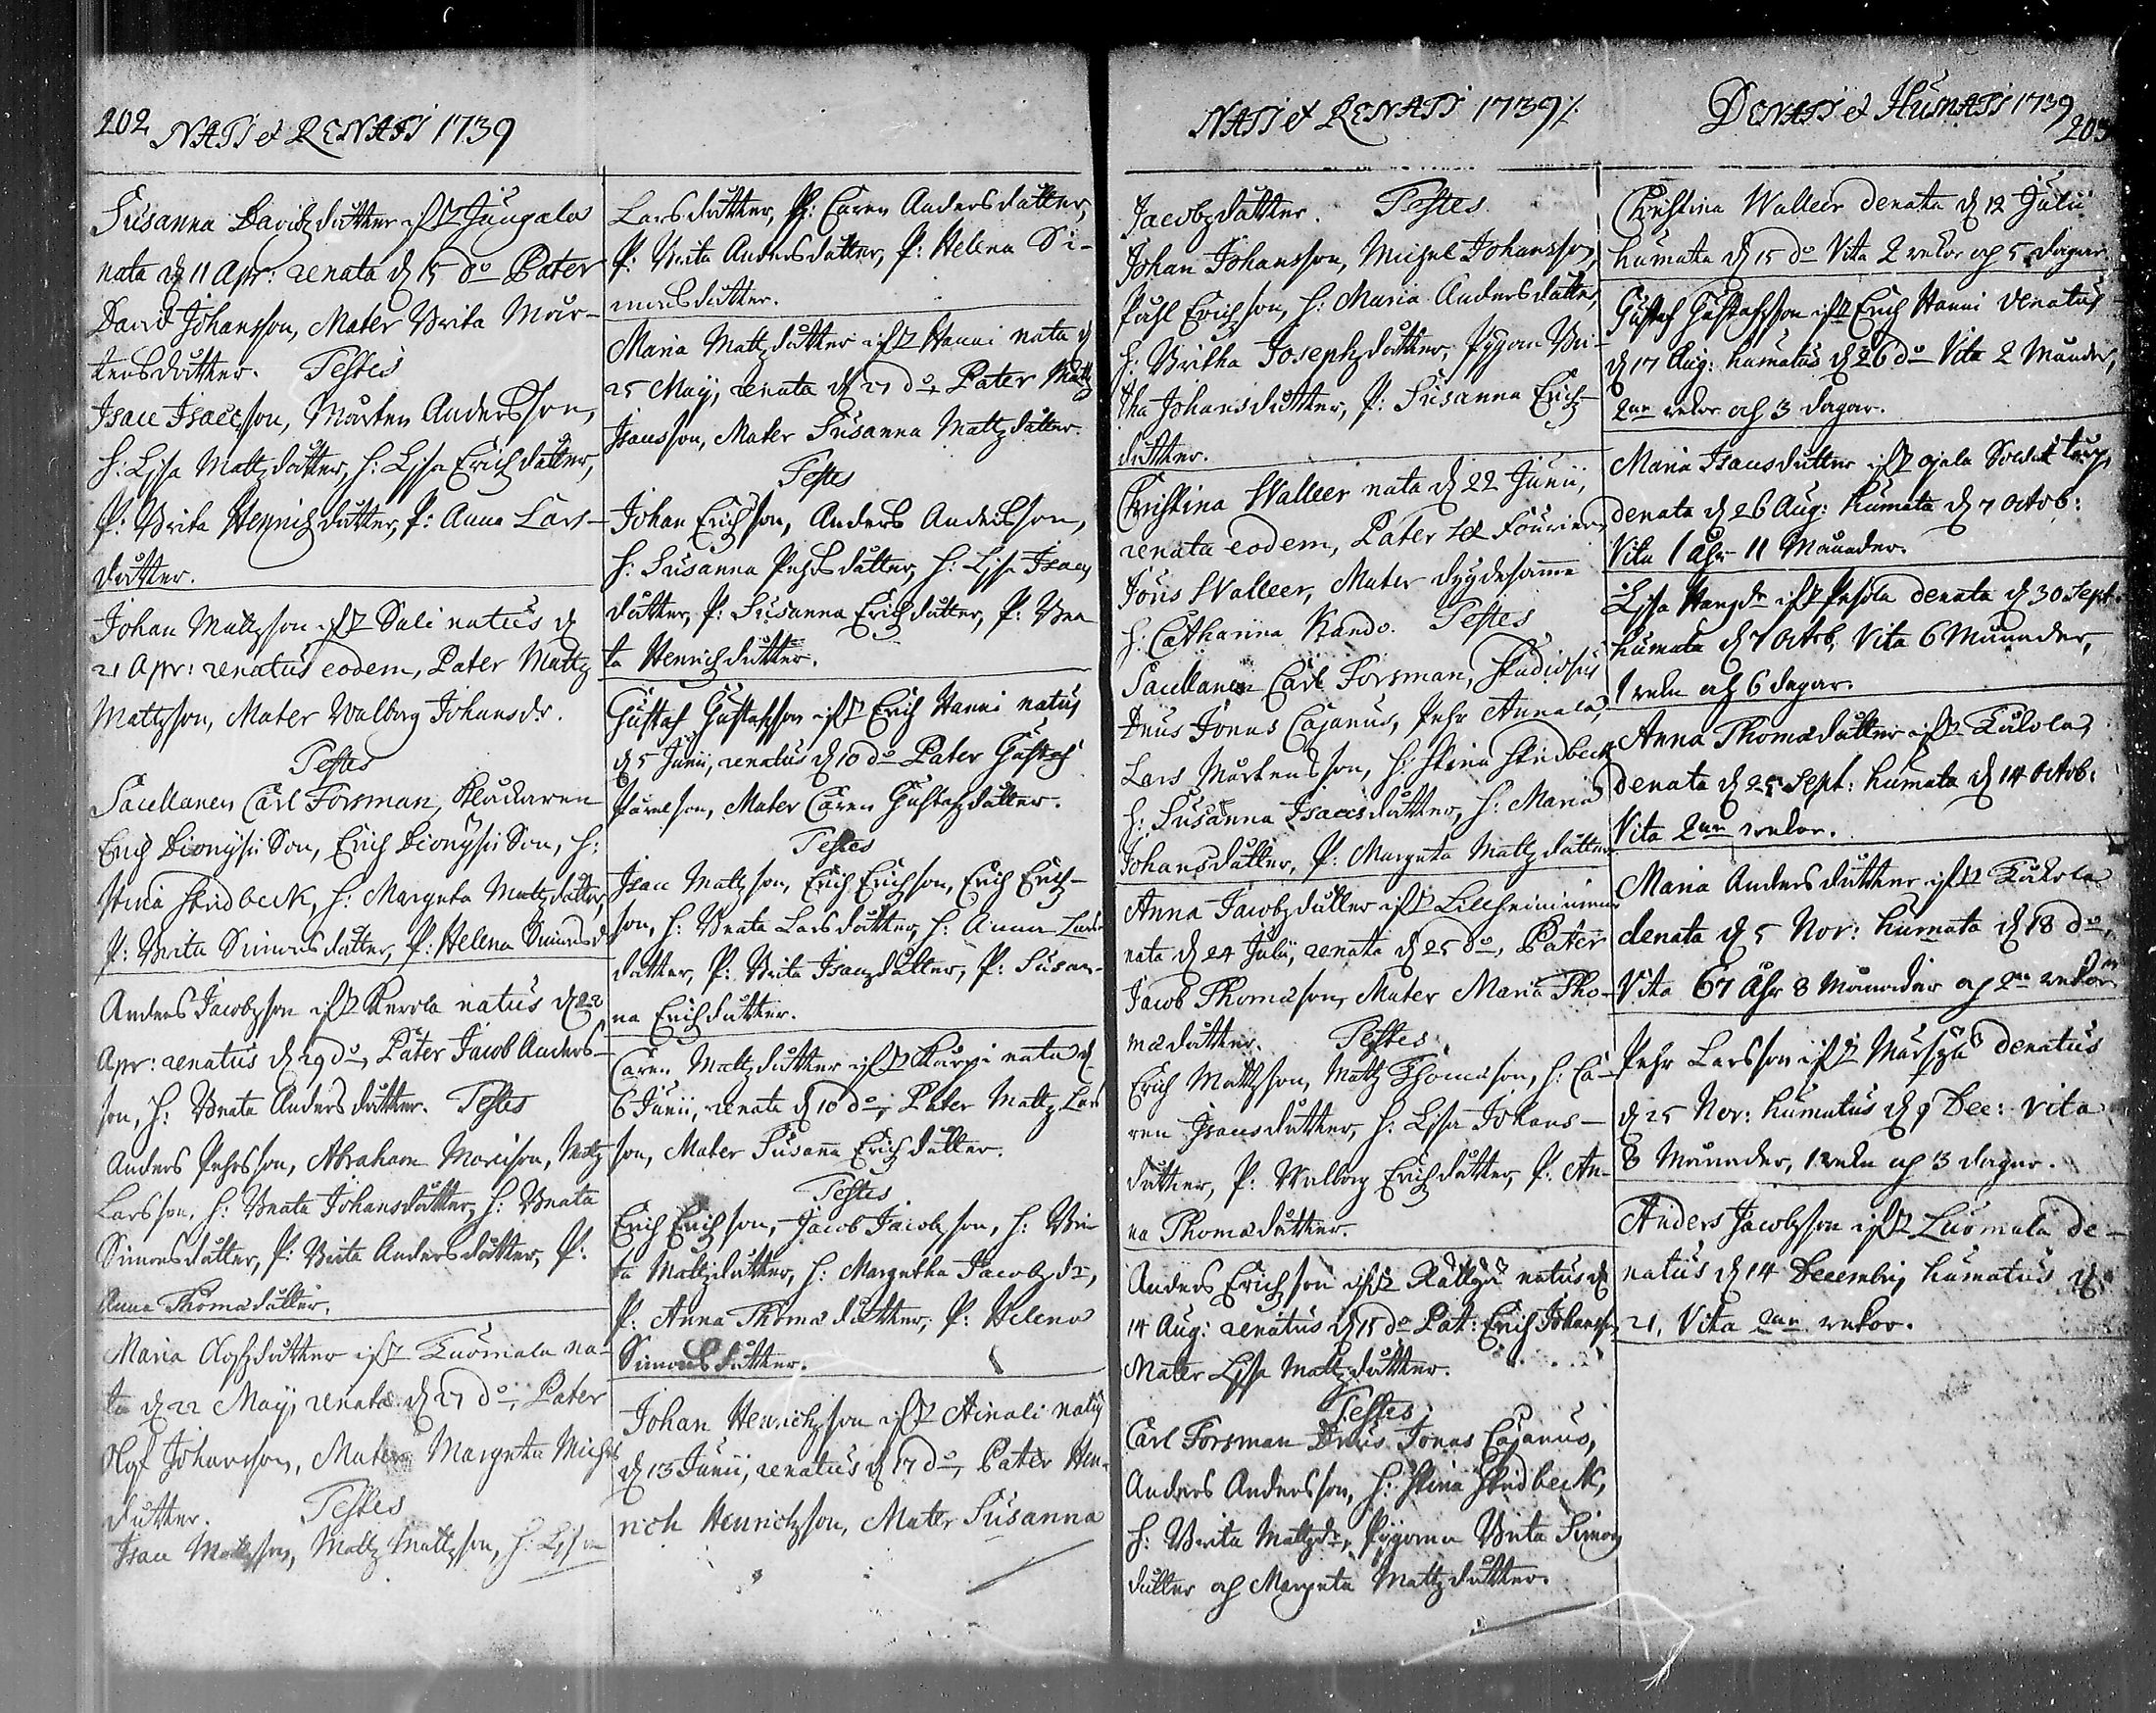 202 NATI et RENATI 1739
Susanna Davidzdotter ifr Jungala
nata d 11 Apr: renata d 15 do Pater
David Johansson, Mater Brita Mår-
tensdotter. Testes
Isac Isacsson, Mårten Andersson,
h: Lisa Mattzdotter, h: Lisa Erichsdotter,
P: Brita Henrichsdotter, P: Anna Lars-
dotter.
Johan Mattzson ifr Sali natus d
21 Apr: renatus eodem, Pater Mattz
Mattzson, Mater Walborg Johansdr.
Testes
Sacellanen Carl Forsman, Klockaren
Erich Dionysii Son, Erich Dionysii Son, h:
Stina Stridbeck, h: Margeta Mattzdotter,
P: Brita Simonsdotter, P: Helena Simonsd
Anders Jacobzson ifr Kerola natus d 22
Apr: renatus d 29 do, Pater Jacob Anders-
son, h: Beata Andersdotter. Testes
Anders Pehrsson, Abraham Marcison, Mattz
Larsson, h: Beata Johansdotter, h: Beata
Simonsdotter, P: Brita Andersdotter, P:
Anna Thomædotter.
Maria Olofsdotter ifr Luomala na-
ta d 22 Maij, renata d 27 do, Pater
Olof Johansson, Mater Margeta Michels
dotter. Testes
Isac Mattzson, Mattz Mattzson, h: Lisa
Larsdotter, P: Caren Andersdotter,
P: Brita Andersdotter, P: Helena Si-
monsdotter.
Maria Mattzdotter ifr Hanni nata d
25 Maij, renata d 27 do, Pater Mattz
Isacsson, Mater Susanna Mattzdotter.
Testes
Johan Erichson, Anders Andersson,
h: Susanna Pehrsdotter, h: Lisa Isacs
dotter, P: Susanna Erichsdotter, P: Bea
ta Henrichsdotter.
Gustaf Gustafsson ifr Erich Hanni natus
d 5 Junii, renatus d 10 do Pater Gustaf
Påvelson, Mater Caren Gustafsdotter.
Testes
Isac Mattzson, Erich Erichson, Erich Erich-
son, h: Beata Larsdotter, h: Anna Lars
dotter, P: Brita Isacsdotter, P: Susan-
na Erichsdotter.
Caren Mattzdotter ifr Karpi nata d
6 Junii, renata d 10 do, Pater Mattz Lars
son, Mater Susana Erichsdotter.
Testes
Erich Erichson, Jacob Jacobzson, h: Bri
ta Mattzdotter, h: Margetha Jacobzdr,
P: Anna Thomædotter, P: Helena
Simonsdotter.
Johan Henrichzson ifr Ainali natus
d 13 Junii, renatus d 17 do, Pater Hen-
rich Henrichzson, Mater Susanna
NATI et RENATI 1739
Jacobzdotter. Testes
Johan Johansson, Michel Johansson,
Påhl Erichson, h: Maria Andersdotter,
h: Britha Josephzdotter, Pigan Bri-
tha Johansdotter, P: Susanna Erichs
dotter.
Christina Walleer nata d 22 Junii,
renata eodem, Pater Fourier
Jöns Walleer, Mater dygdesamme
h: Catharina Kando. Testes
Sacellanen Carl Forsman, Studiosus
Dnus Jonas Cajanus, Pehr Annala,
Lars Mårtensson, h: Stina Stridbeck
h: Susanna Isacsdotter, h: Maria
Johansdotter, P: Margeta Mattzdotter
Anna Jacobzdotter ifr
nata d 24 Julii, renata d 25 do, Pater
Jacob Thomæson, Mater Maria Tho-
mædotter. Testes
Erich Mattzson, Mattz Thomæson, h: Ca-
ren Isacsdotter, h: Lisa Johans-
dotter, P: Walborg Erichsdotter, P: An-
na Thomædotter.
Anders Erichson ifr natus d
14 Aug: renatus d 15 do Pat: Erich Johansson,
Mater Lisa Mattzdotter.
Testes
Carl Forsman Dnus Jonas Cajanus,
Anders Andersson, h: Stina Stridbeck,
h: Brita Mattzdr, Pigorna Brita Simons
dotter och Margeta Mattzdotter.
DENATI et HUMATI 1739
203
Christina Walleer denata d 12 Julii
humata d 15 do Vita 2 wekor och 5 dagar
Gustaf Gustafsson ifr Erich Hanni denatus
d 17 Aug: humatus d 26 do Vita 2 Månader,
2ne wekor och 3 dagar.
Maria Isacsdotter ifr Ojala Soldat torp,
denata d 26 Aug: humata d 7 Octob:
Vita 1 åhr 11 Månader.
Lisa Hansdr ifr Pesola denata d 30 Sept:
humata d 7 Octob, Vita 6 Månader,
1 weka och 6 dagar.
Anna Thomædotter ifr
denata d 25 Sept: humata d 14 Octob:
Vita 2ne wekor.
Maria Andersdotter ifr
denata d 5 Nov: humata d 18 do,
Vita 67 Åhr 8 Månader och 2ne wekor
Pehr Larsson ifr denatus
d 25 Nov: humatus d 9 Dec: Vita
8 Månader, 1 weka och 3 dagar.
Anders Jacobzson ifr Luomala de-
natus d 14 Decembr, humatus d
21, Vita 2ne wekor.